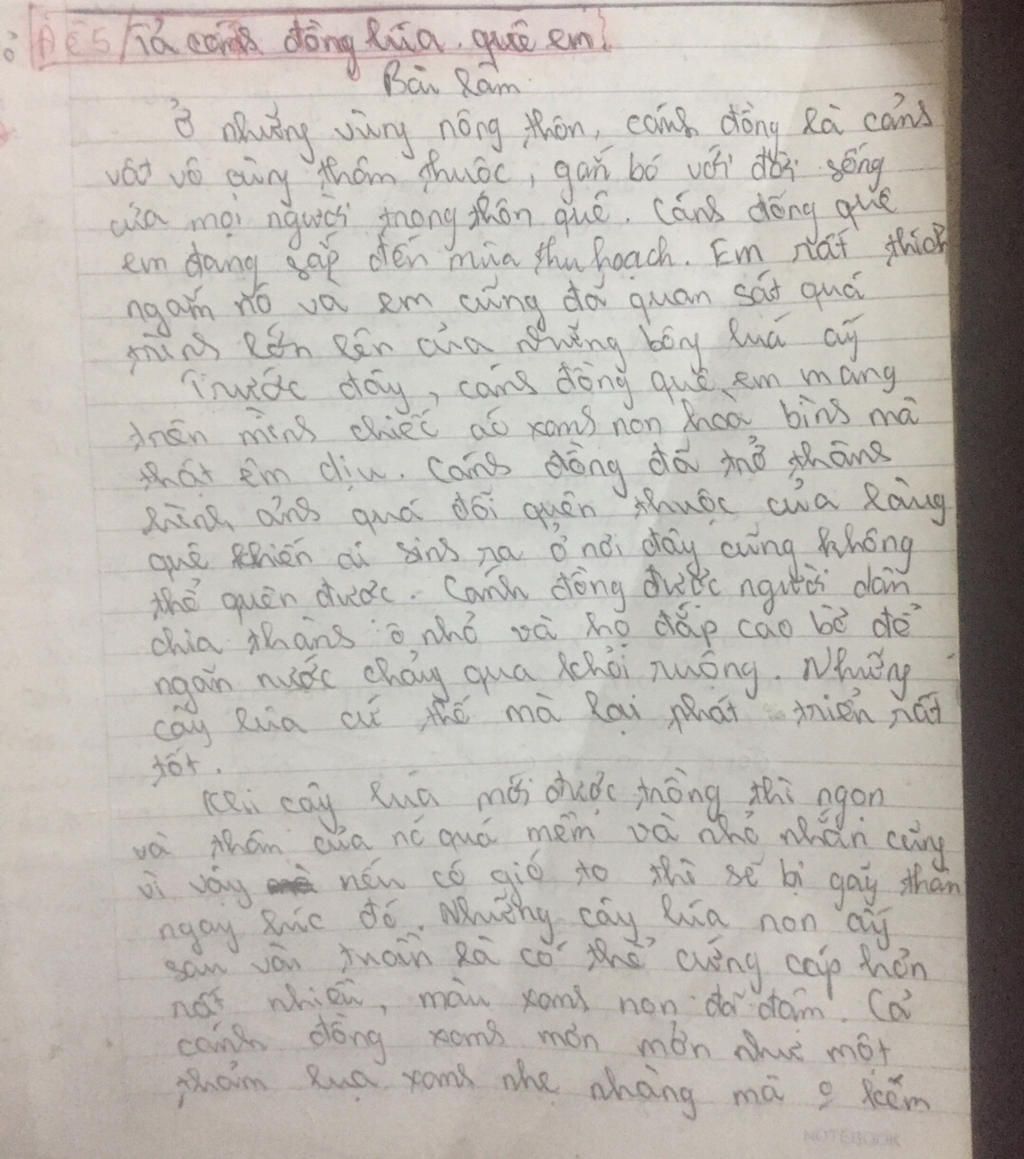 Đề 5/Tả cánh đồng lúa quê em.
Bài làm
Ở những vùng nông thôn, cánh đồng là cảnh
vật vô cùng thôm thuộc, gắn bó với đời sống
của mọi người trong thôn quê. Cánh đồng quê
em đang sắp đến mùa thu hoạch. Em rất thích
ngắm nó và em cũng đã quan sát quá
trình lớn lên của những bông luá ấy
Trước đây, cánh đồng quê em mang
trên mình chiếc áo xanh non hòa bình mà
thật êm dịu. Cánh đồng đã trở thành
hình ảnh quá đỗi quên thuộc của làng
quê khiến ai sinh ra ở nơi đây cũng không
thể quên được. Cánh đồng được người dân
chia thành ô nhỏ và họ đắp cao bề để
ngăn nước chảy qua khỏi ruộng. Những
cây lúa cứ thế mà lại phát triển rất
tốt.
Khi cây luá mới được trồng thì ngọn
và thân của nó quá mềm và nhỏ nhắn cũng
vì vậy nến có gió to thì sẽ bị gãy thân
ngay lúc đó. Những cây lúa non ấy
sau vài tuần là có thể cứng cáp hơn
rất nhiều, màu xanh non đã đậm. Cả
cánh đồng xanh mơn mởn như một
thảm lụa xanh nhẹ nhàng mà o kém
NOTEBOOK